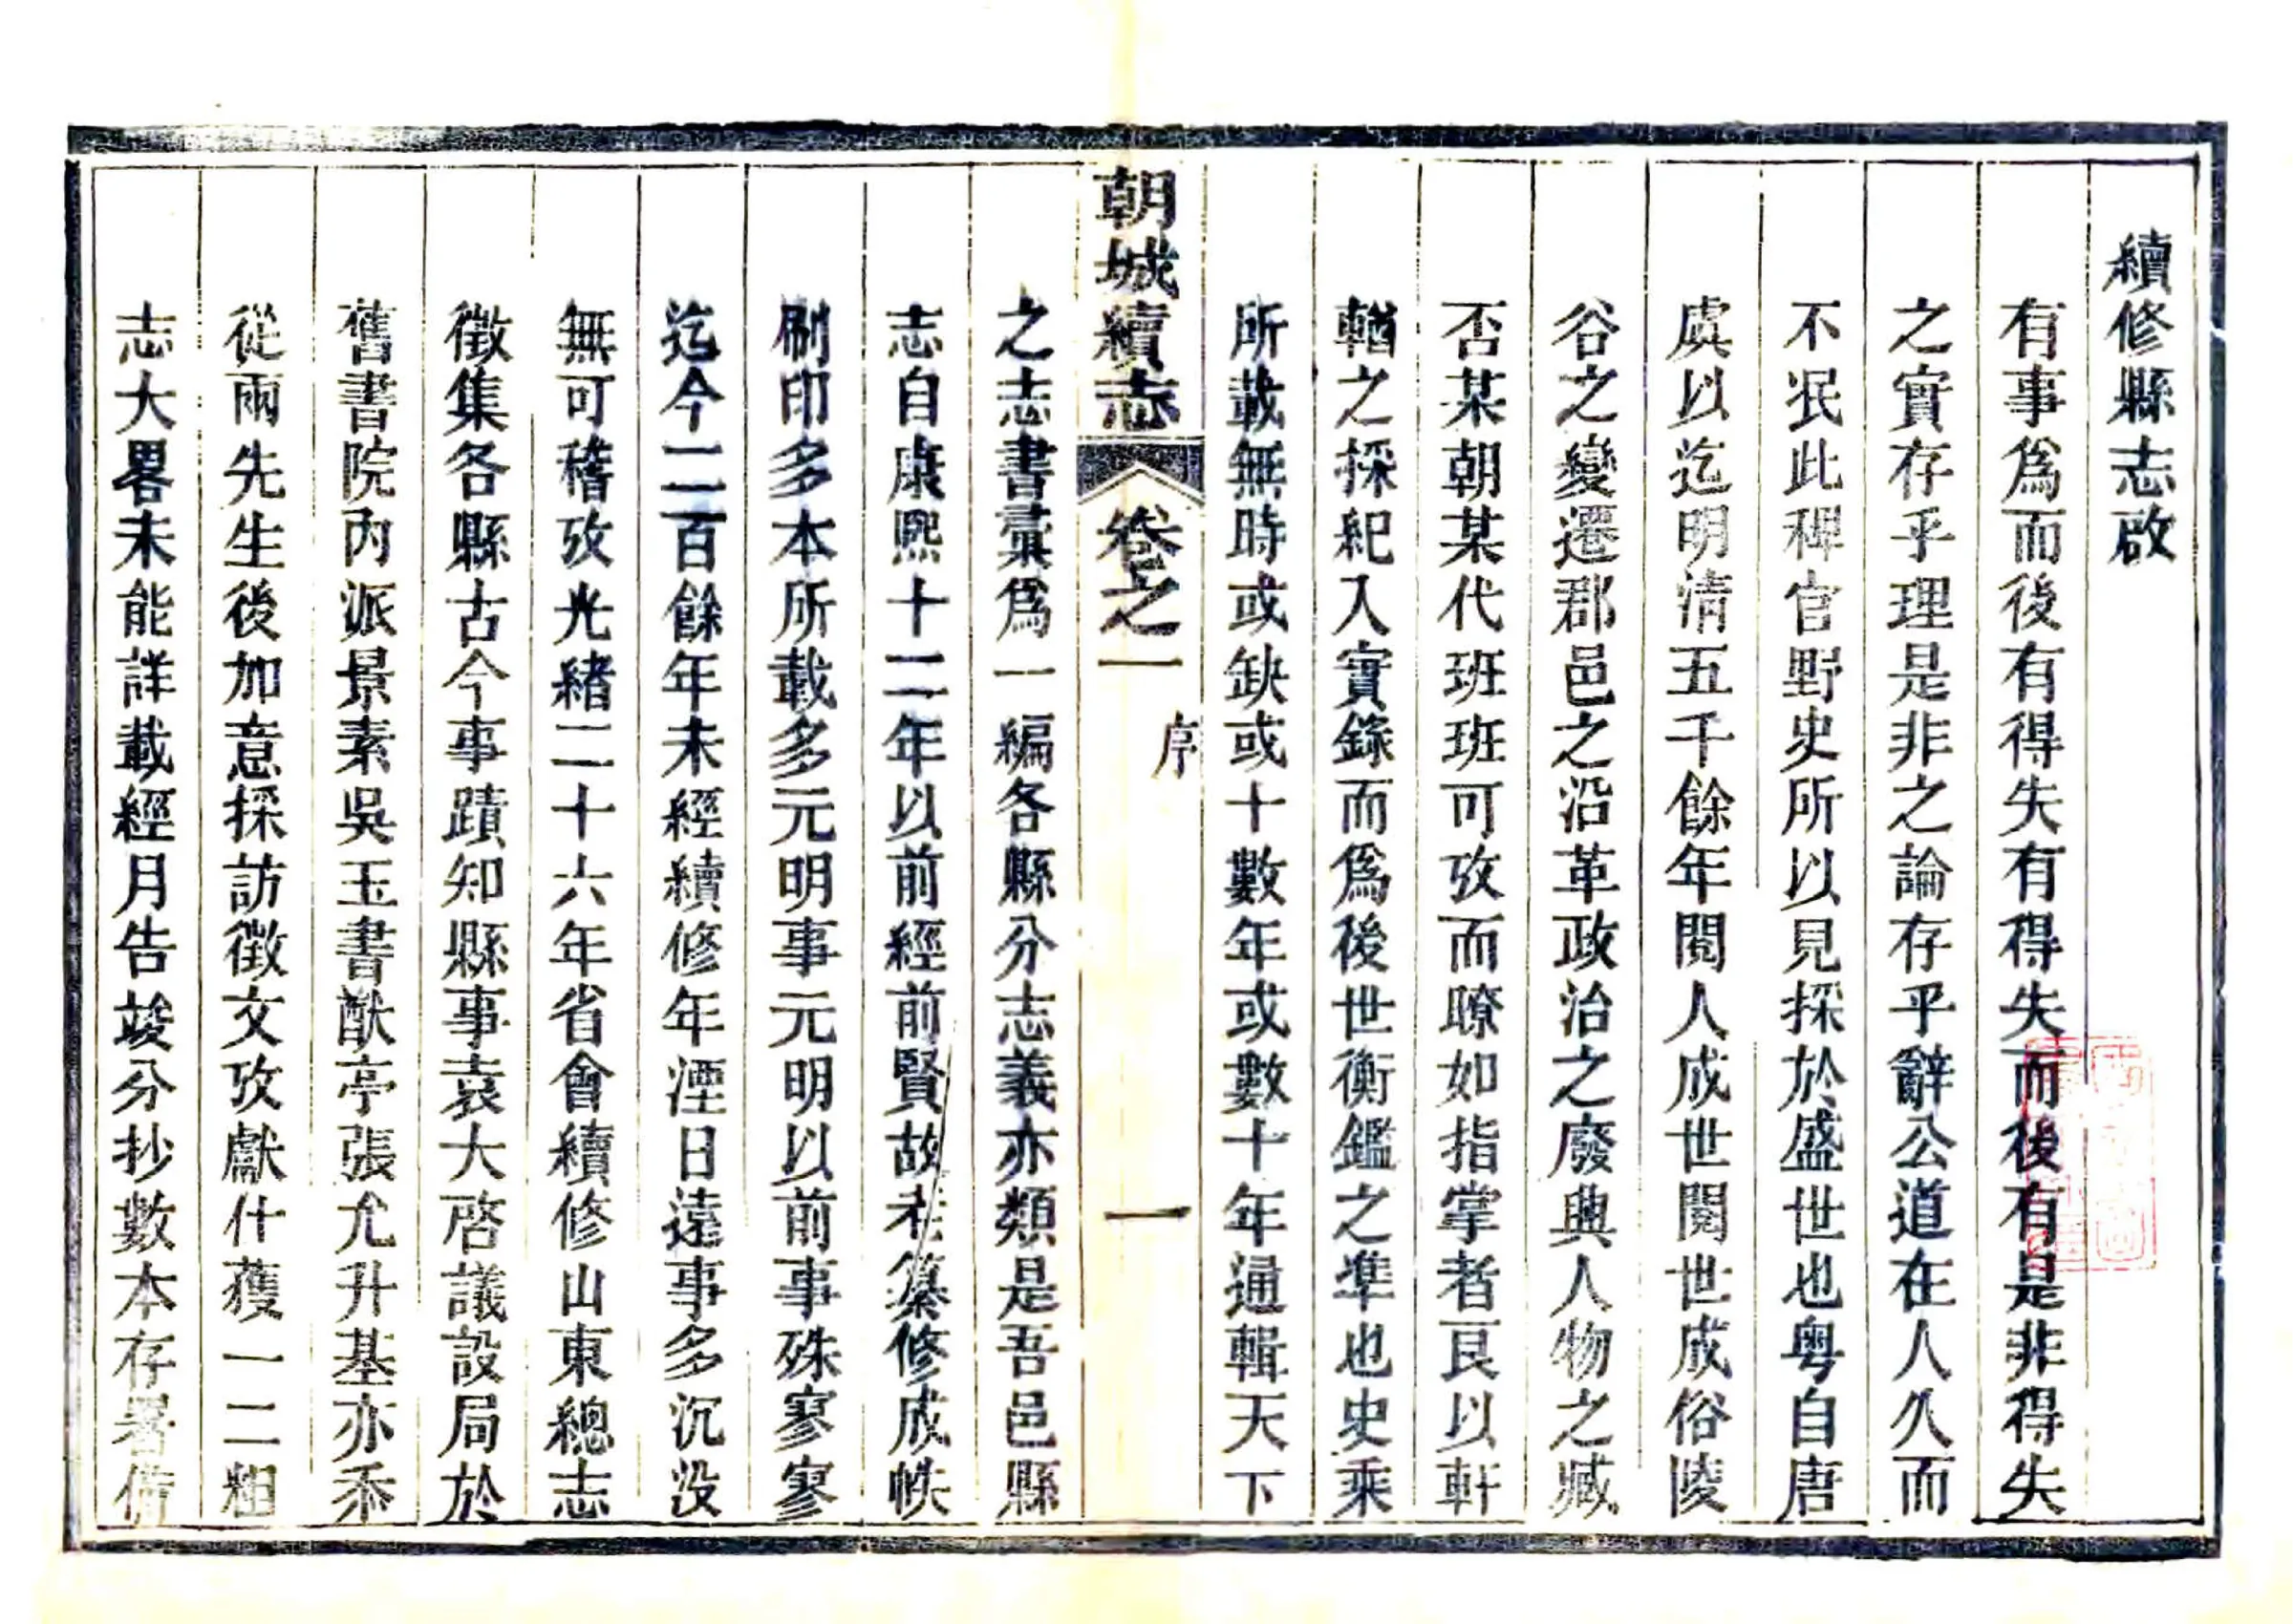 續修縣志啟
有事爲而後有得失有得失而後有是非得失
之實存乎理是非之論存乎辭公道在人久而
不泯此稗官野史所以見採於盛世也粤自唐
虞以迄明清五千餘年閱人成世閱世成俗陵
谷之變遷郡邑之沿革政治之廢興人物之臧
否某朝某代班班可攷而暸如指掌者良以軒
輶之採紀入實錄而爲後世衡鑑之準也史乘
所載無時或缺或十數年或數十年通輯天下
朝城續志 卷之一 序 一
之志書彙爲一編各縣分志義亦類是吾邑縣
志自康熙十二年以前經前賢故老纂修成帙
刷印多本所載多元明事元明以前事殊寥寥
迄今二百餘年未經續修年湮日遠事多沉没
無可稽攷光緒二十六年省會續修山東總志
徵集各縣古今事蹟知縣事袁大啓議設局於
舊書院內派景素吳玉書猷亭張允升基亦忝
從兩先生後加意採訪徵文攷獻什獲一二粗
志大畧未能詳載經月告竣分抄數本存署備